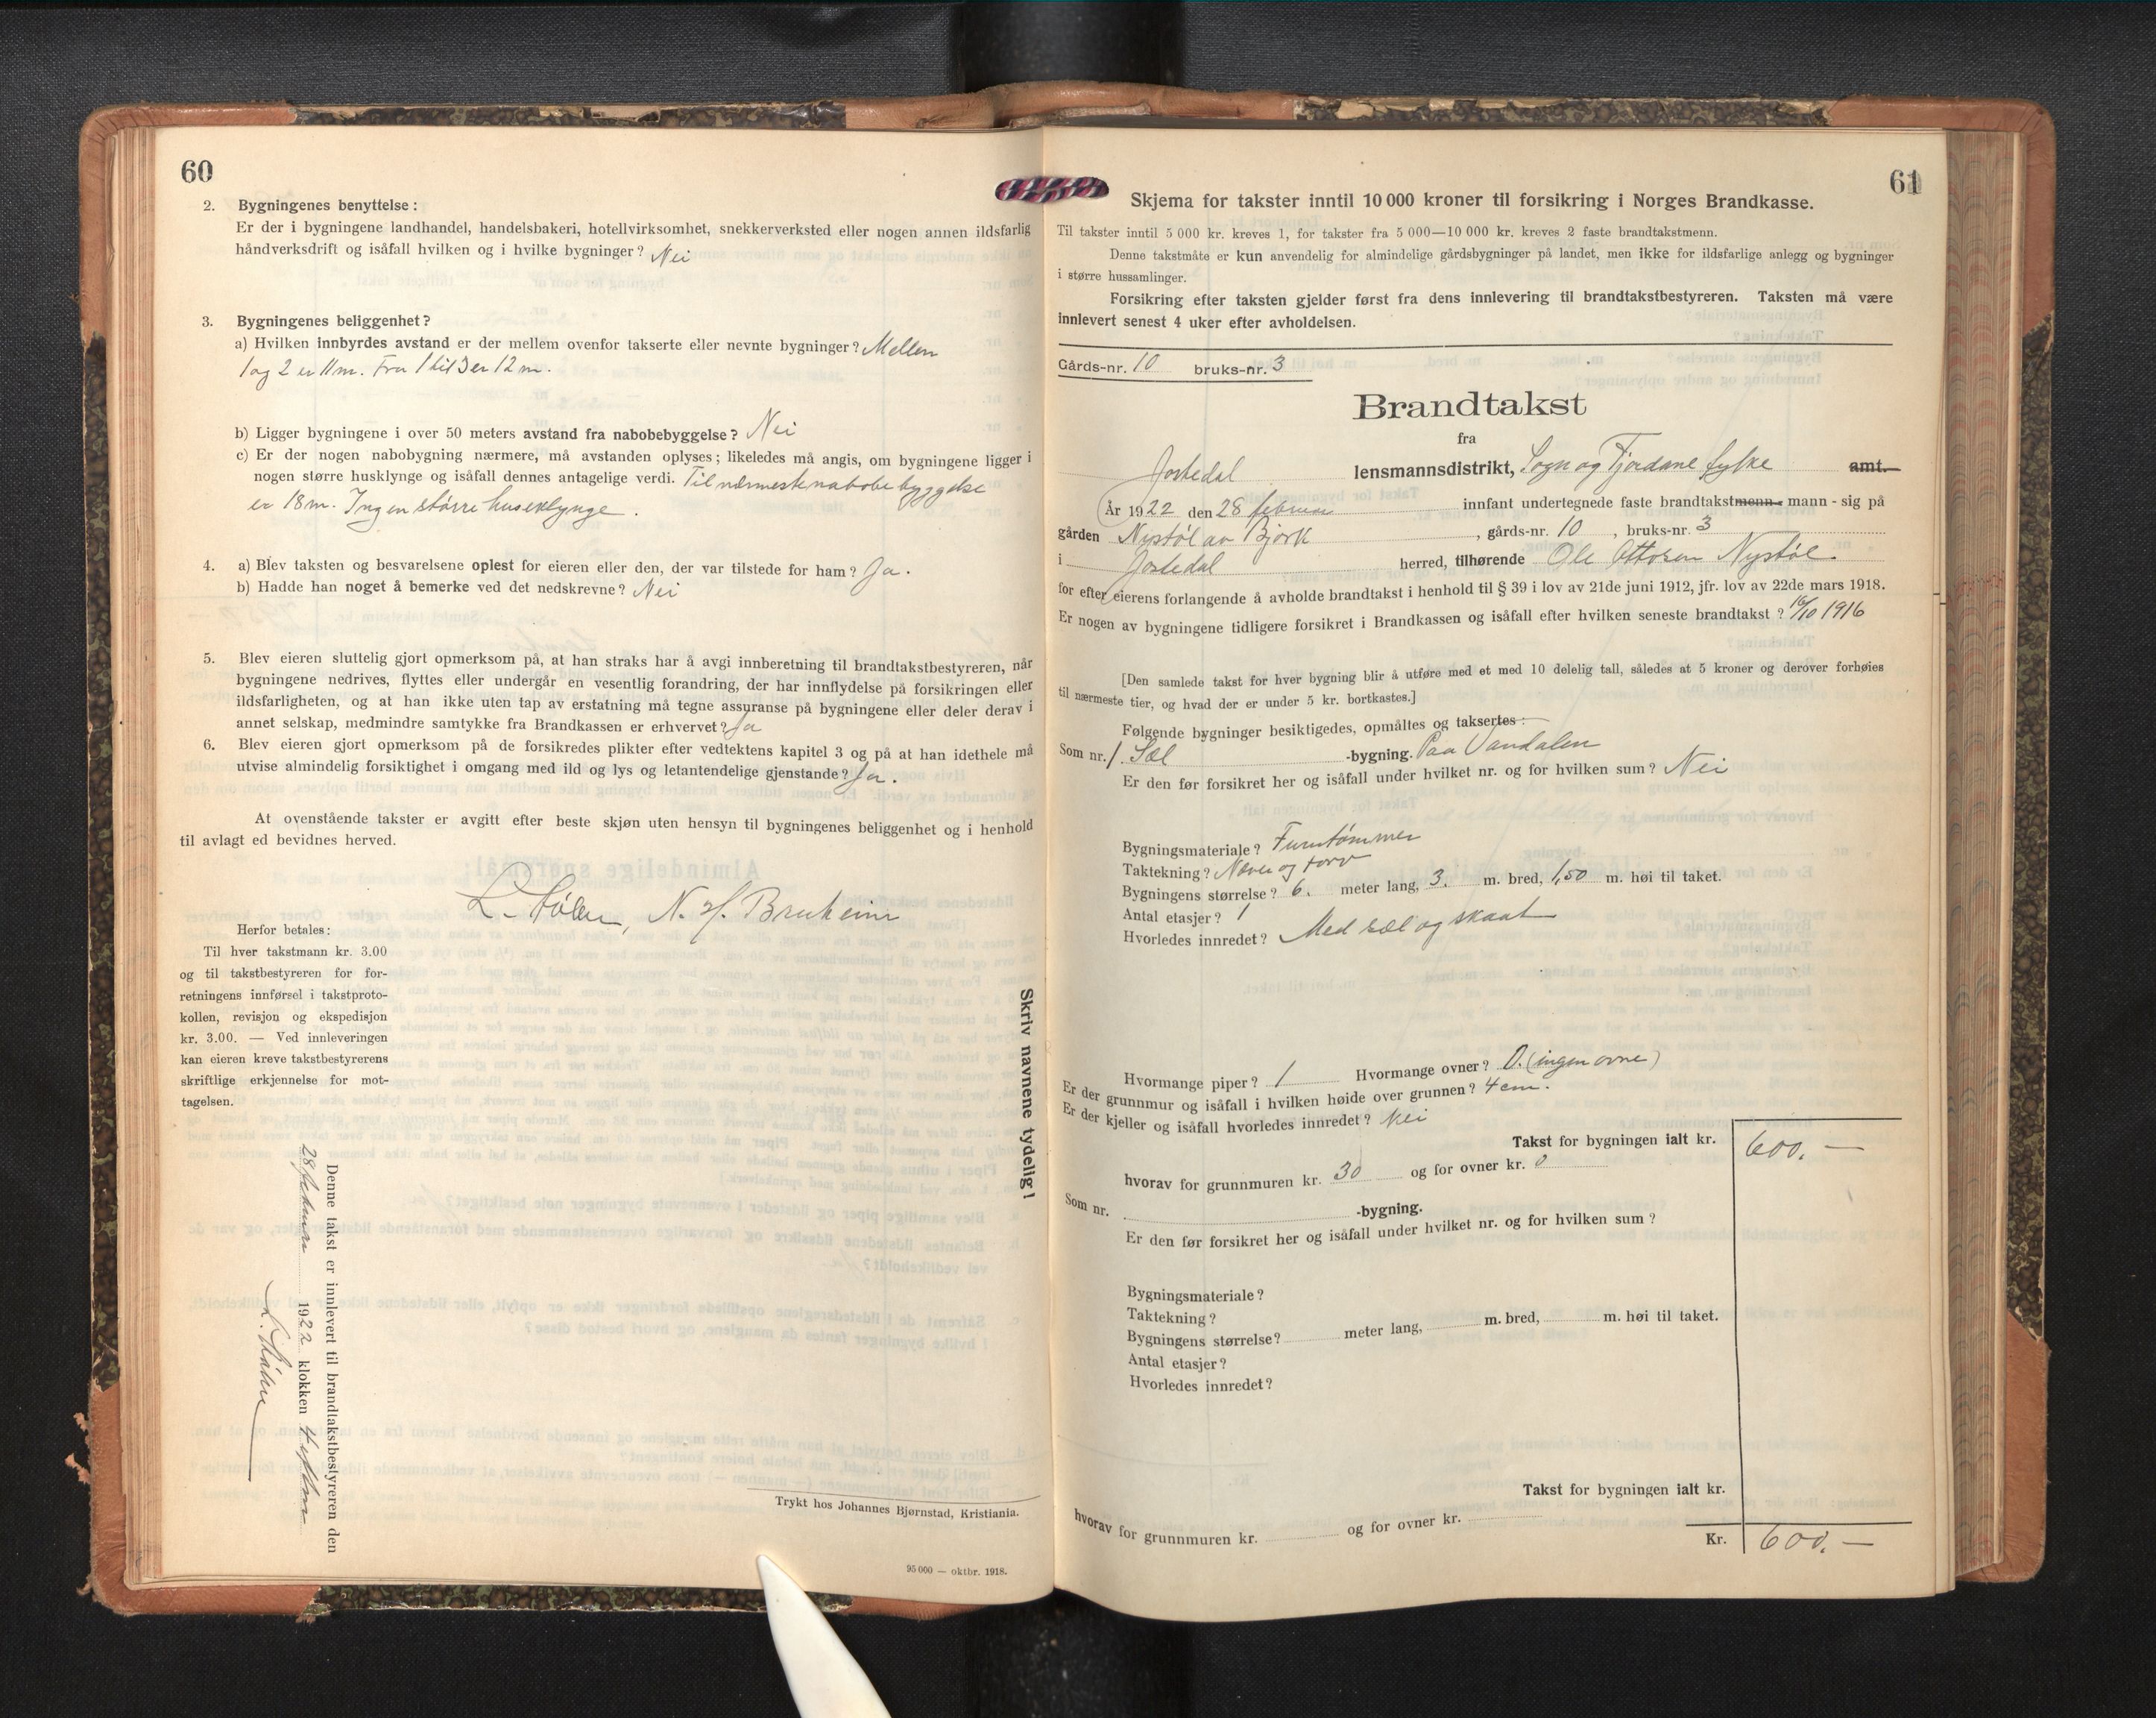 60
2. Bygningenes benyttelse:
Er der i bygningene landhandel, handelsbakeri, hotellvirksomhet, snekkerverksted eller nogen annen ildsfarlig
håndverksdrift og isåfall hvilken og i hvilke bygninger? Nei
3. Bygningenes beliggenhet?
a) Hvilken innbyrdes avstand er der mellem ovenfor takserte eller nevnte bygninger? Mellem
1 og 2 er 11 m. Fra 1 til 3 er 12 m.
b) Ligger bygningene i over 50 meters avstand fra nabobebyggelse? Nei
c) Er der nogen nabobygning nærmere, må avstanden oplyses; likeledes må angis, om bygningene ligger i
nogen større husklynge og isåfall dennes antagelige verdi. Til nærmeste nabobebyggelse
er 18 m. Ingen større huseklynge.
4. a) Blev taksten og besvarelsene oplest for eieren eller den, der var tilstede for ham? Ja.
b) Hadde han noget å bemerke ved det nedskrevne? Nei
5. Blev eieren sluttelig gjort opmerksom på, at han straks har å avgi innberetning til brandtakstbestyreren, når
bygningene nedrives, flyttes eller undergår en vesentlig forandring, der har innflydelse på forsikringen eller
ildsfarligheten, og at han ikke uten tap av erstatning må tegne assuranse på bygningene eller deler derav i
annet selskap, medmindre samtykke fra Brandkassen er erhvervet? Ja
6. Blev eieren gjort opmerksom på de forsikredes plikter efter vedtektens kapitel 3 og på at han idethele må
utvise almindelig forsiktighet i omgang med ild og lys og letantendelige gjenstande? Ja.
At ovenstående takster er avgitt efter beste skjøn uten hensyn til bygningenes beliggenhet og i henhold
til avlagt ed bevidnes herved.
L. Stölen, N. H. Bruheim
Herfor betales:
Til hver takstmann kr. 3.00
og til takstbestyreren for for-
retningens innførsel i takstproto-
kollen, revisjon og ekspedisjon
kr. 3.00. — Ved innleveringen
kan eieren kreve takstbestyrerens
skriftlige erkjennelse for mot-
tagelsen.
Skriv navnene tydelig!
Denne takst er innlevert til brandtakstbestyreren den
28 februar 1922 klokken 4 eftm
L. Stölen
Trykt hos Johannes Bjørnstad, Kristiania.
95 000 — oktbr. 1918.
61
Skjema for takster inntil 10 000 kroner til forsikring i Norges Brandkasse.
Til takster inntil 5 000 kr. kreves 1, for takster fra 5 000—10 000 kr. kreves 2 faste brandtakstmenn.
Denne takstmåte er kun anvendelig for almindelige gårdsbygninger på landet, men ikke for ildsfarlige anlegg og bygninger
i større hussamlinger.
Forsikring efter taksten gjelder først fra dens innlevering til brandtakstbestyreren. Taksten må være
innlevert senest 4 uker efter avholdelsen.
Gårds-nr. 10 bruks-nr. 3
Brandtakst
fra
Jostedal lensmannsdistrikt, Sogn og Fjordane fylke amt.
År 1922 den 28 februar innfant undertegnede faste brandtakstmenn - mann - sig på
gården Nystöl av Bjørk, gårds-nr. 10, bruks-nr. 3
i Jostedal herred, tilhørende Ole Ottosen Nystöl.
for efter eierens forlangende å avholde brandtakst i henhold til § 39 i lov av 21de juni 1912, jfr. lov av 22de mars 1918.
Er nogen av bygningene tidligere forsikret i Brandkassen og isåfall efter hvilken seneste brandtakst? 16/10 1916
[Den samlede takst for hver bygning blir å utføre med et med 10 delelig tall, således at 5 kroner og derover forhøies
til nærmeste tier, og hvad der er under 5 kr. bortkastes.]
Følgende bygninger besiktigedes, opmåltes og taksertes:
Som nr. 1. Sæl -bygning. Paa Vandalen
Er den før forsikret her og isåfall under hvilket nr. og for hvilken sum? Nei
Bygningsmateriale? Furutömmer
Taktekning? Næver og torv
Bygningens størrelse? 6. meter lang, 3. m. bred, 1,50 m. høi til taket.
Antal etasjer? 1
Hvorledes innredet? Med sæl og skaat
Hvormange piper? 1 Hvormange ovner? 0. (ingen ovne)
Er der grunnmur og isåfall i hvilken høide over grunnen? 4 cm.
Er der kjeller og isåfall hvorledes innredet? Nei
Takst for bygningen ialt kr. 600.—
hvorav for grunnmuren kr. 30 og for ovner kr. 0
Som nr. -bygning.
Er den før forsikret her og isåfall under hvilket nr. og for hvilken sum?
Bygningsmateriale?
Taktekning?
Bygningens størrelse? meter lang, m. bred, m. høi til taket.
Antal etasjer?
Hvorledes innredet?
Takst for bygningen ialt kr.
hvorav for grunnmuren kr. og for ovner kr.
Kr. 600.—